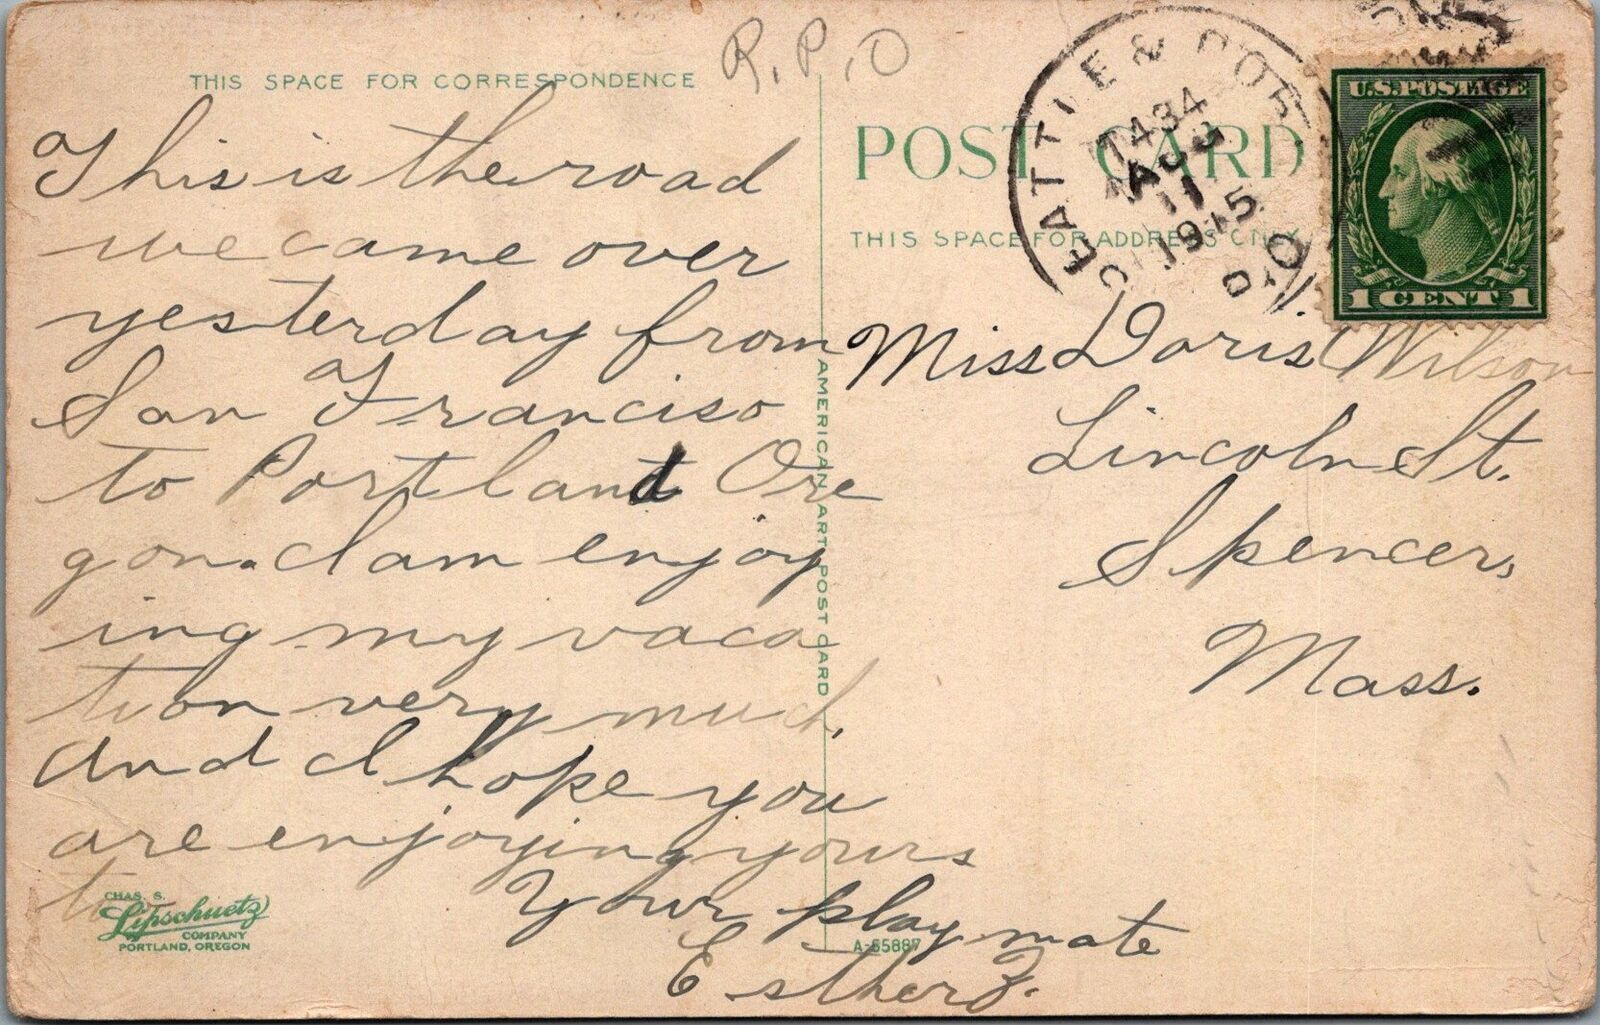 R.P.O
THIS SPACE FOR CORRESPONDENCE
This is the road
we came over
yesterday from
San Franciso
to Portland Ore
gon. I am enjoy
ing my vaca
tion very much,
and I hope you
are enjoying yours
too
Your playmate
Esther Z.
CHAS. S.
Lipschuetz
COMPANY
PORTLAND, OREGON
AMERICAN ART POST CARD
A-55887
POST CARD
THIS SPACE FOR ADDRESS ONLY
SEATTLE & POR
T434
AUG
11
1915
R.P.O.
U.S. POSTAGE
1 CENT 1
Miss Doris Wilson
Lincoln St.
Spencer,
Mass.